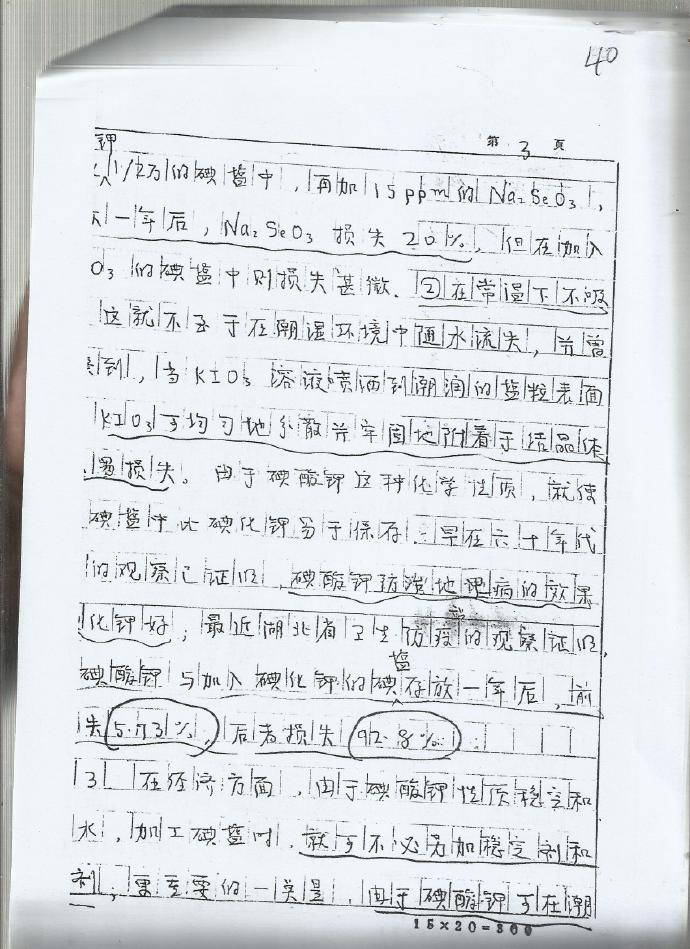 40
第 3 页
钾
1/2万的碘盐中，再加15ppm的Na₂SeO₃，
一年后，Na₂SeO₃ 损失20%，但在加入
O₃ 的碘盐中则损失甚微．②在常温下不吸
这就不至于在潮湿环境中随水流失，并曾
到，当KIO₃ 溶液喷洒到潮润的盐粒表面
KIO₃可均匀地分散并牢固地附着于结晶体
易损失。由于碘酸钾这种化学性质，就使
碘盐中比碘化钾易于保存．早在六十年代
的观察已证明，碘酸钾防治地甲病的效果
化钾好；最近湖北省卫生防疫的观察证明，
碘酸钾与加入碘化钾的碘盐存放一年后，前
失5.73%，后者损失92.8%．
3 在经济方面，由于碘酸钾性质稳定和
水，加工碘盐时，就可不必另加稳定剂和
剂；更重要的一点是，由于碘酸钾可在潮
15×20=300